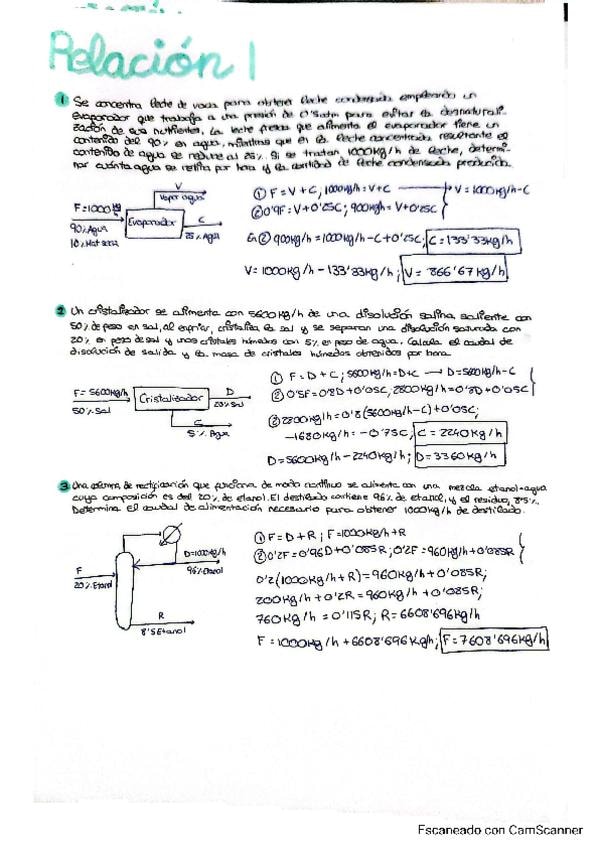 Relación 1
1 Se concentra leche de vaca para obtener leche condensada empleando un
evaporador que trabaja a una presión de 0'5atm para evitar la desnaturali-
zación de sus nutrientes. La leche fresca que alimenta el evaporador tiene un
contenido del 90% en agua, mientras que en la leche concentrada resultante el
contenido de agua se reduce al 25%. Si se tratan 1000kg/h de leche, determi-
nar cuánta agua se retira por hora y la cantidad de leche condensada producida.
V
Vapor agua
F=1000 kg/h
Evaporador
C
90% Agua
25% Agua
10% Mat seca
① F = V + C; 1000kg/h = V+C → V = 1000kg/h-C
② 0'9F = V+0'25C; 900kg/h = V+0'25C
En ② 900kg/h = 1000kg/h - C + 0'25C; C = 133'33kg/h
V = 1000kg/h - 133'33kg/h; V = 866'67 kg/h
2 Un cristalizador se alimenta con 5600kg/h de una disolución salina caliente con
50% de peso en sal, al enfriar, cristaliza la sal y se separan una disolución saturada con
20% en peso de sal y unos cristales húmedos con 5% en peso de agua. Calcula el caudal de
disolución de salida y la masa de cristales húmedos obtenidos por hora.
F = 5600kg/h
Cristalizador
D
50% Sal
20% Sal
C
5% Agua
① F = D + C; 5600kg/h = D+C → D = 5600kg/h-C
② 0'5F = 0'8D + 0'05C, 2800kg/h = 0'8D + 0'05C
② 2800kg/h = 0'8(5600kg/h-C) + 0'05C;
-1680kg/h = -0'75C; C = 2240kg/h
D = 5600kg/h - 2240kg/h; D = 3360kg/h
3 Una columna de rectificación que funciona de modo continuo se alimenta con una mezcla etanol-agua
cuya composición es del 20% de etanol. El destilado contiene 96% de etanol, y el residuo, 8'5%.
Determina el caudal de alimentación necesario para obtener 1000kg/h de destilado.
D=1000kg/h
F
96% Etanol
20% Etanol
R
8'5 Etanol
① F = D + R; F = 1000kg/h + R
② 0'2F = 0'96D + 0'085R; 0'2F = 960kg/h + 0'085R
0'2(1000kg/h + R) = 960kg/h + 0'085R;
200kg/h + 0'2R = 960kg/h + 0'085R;
760kg/h = 0'115R; R = 6608'696kg/h
F = 1000kg/h + 6608'696 kg/h; F = 7608'696kg/h
Escaneado con CamScanner